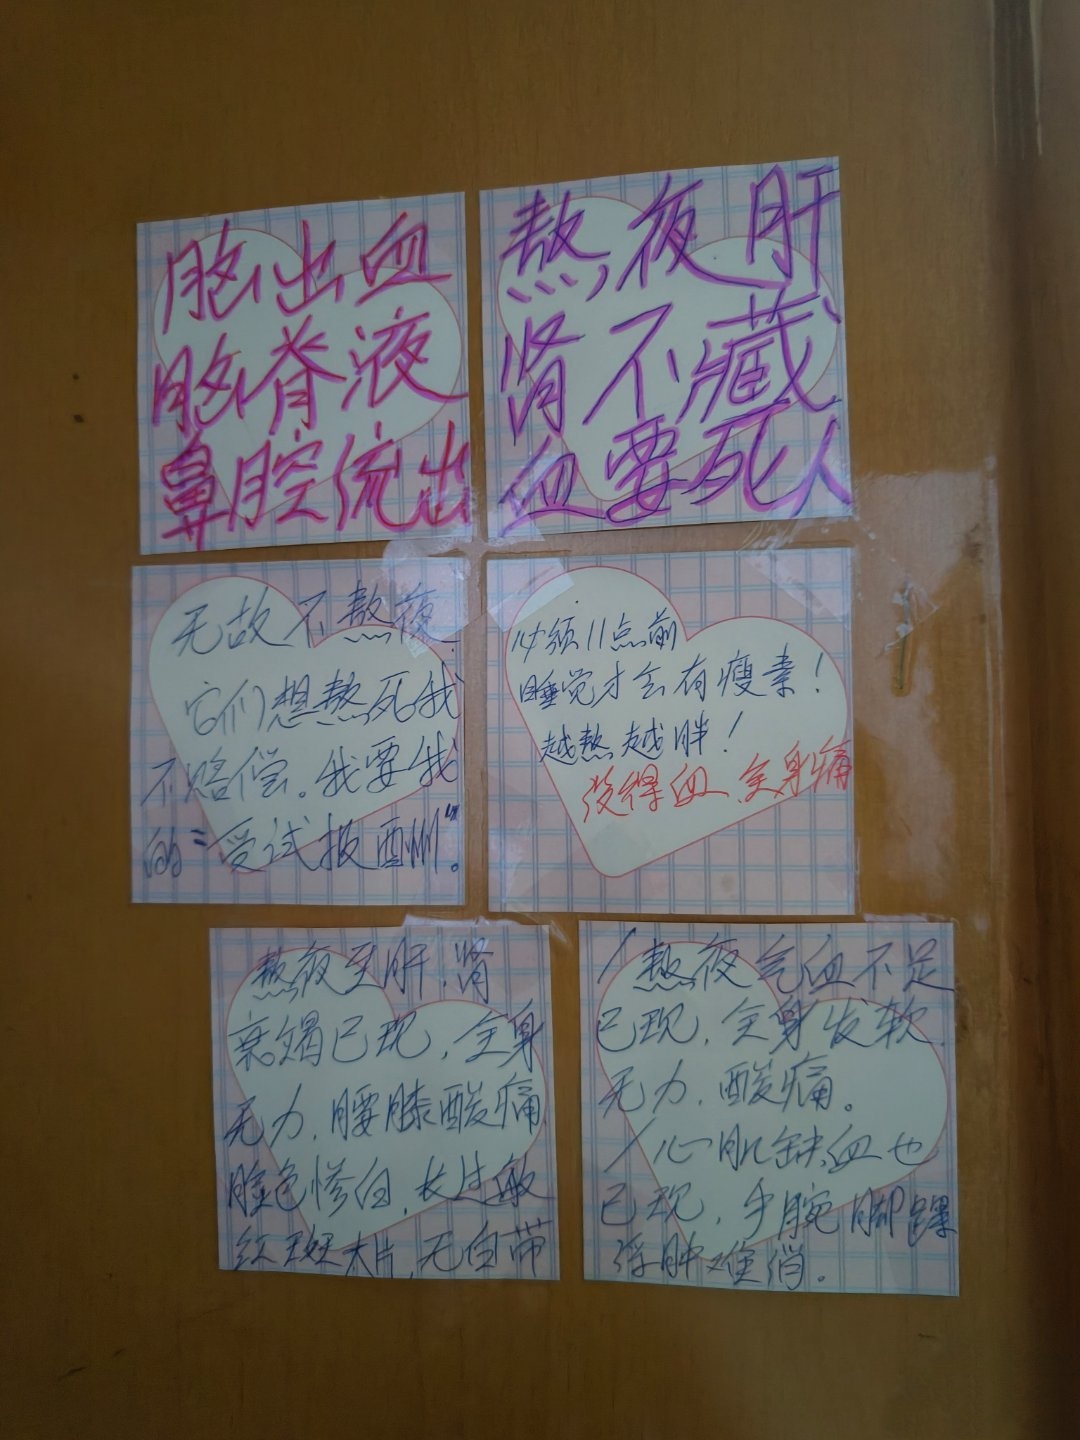 脑出血
脑脊液
鼻腔流出
熬夜肝
肾不藏
血要死人
无故不熬夜.
它们想熬死我
不赔偿。我要我
的"受试报酬"。
必须11点前
睡觉才会有瘦素!
越熬越胖!
没得血,全身痛
熬夜至肝.肾
衰竭已现,全身
无力,腰膝酸痛
脸色惨白,长过敏
红斑大片,无白带
熬夜气血不足
已现,全身发软.
无力,酸痛。
心肌缺血也
已现,手腕脚踝
浮肿难消。